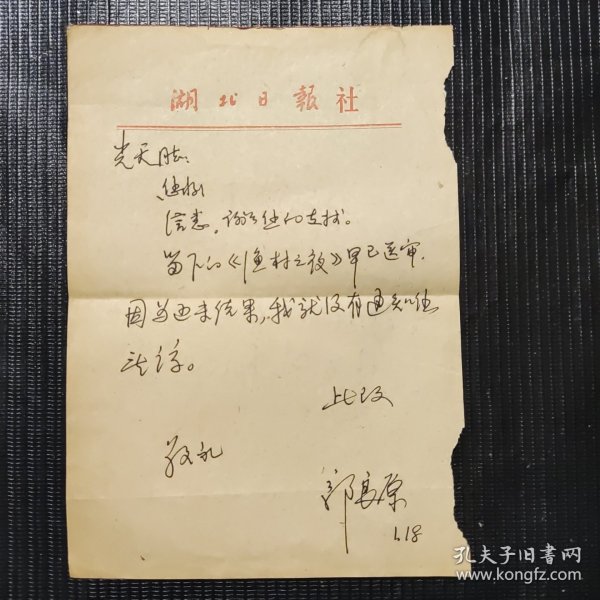 湖北日報社
光天同志:
您好
信悉,谢谢您的支持。
留下的《渔村之夜》早已送审,
因为还未结果,我就没有通知您
请谅。
此致
敬礼
郭良原
1.18
孔夫子旧书网
www.kongfz.com